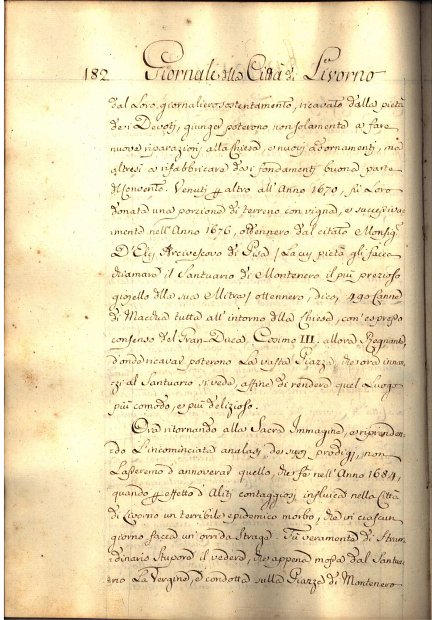 182 Giornale della Città di Livorno
dal Loro giornaliero sostentamento, ricavato dalla pietà
dei Devoti, giunger poterono non solamente a fare
nuove riparazioni alla Chiesa, e nuovi adornamenti, mà
altresì a rifabbricare dai fondamenti buona parte
del Convento. Venuti altro all'Anno 1670, fù Loro
donata una porzione di terreno con vigna, e successiva-
mente nell'Anno 1676, ottennero dal citato Monsigr.
D'Elci Arcivescovo di Pisa / La cui pietà gli facea
chiamare il Santuario di Montenero il più prezioso
giojello della sua Mitra / ottennero, dico, 490 Canne
di Macchia tutta all'intorno della Chiesa, con espresso
consenso del Gran-Duca Cosimo III, allora Regnante,
d'onde ricavar poterono La vasta Piazza, che ora innan-
zi al Santuario si vede, affine di rendere quel Luogo
più comodo, e più delizioso.
Ora ritornando alla Sacra Immagine, e riprenden-
do L'incominciata analasi dei suoi prodigj, non
Lasceremo d'annoverar quello, che fè nell'Anno 1684,
quando effetto d'Aliti contaggiosi influiva nella Città
di Livorno un terribile epidemico morbo, che in ciascun
giorno facea un'orrida Strage. Fù veramente di Straor-
dinario Stupore il vedere, che appena mossa dal Santua-
rio La Vergine, e condotta sulla Piazza di Montenero